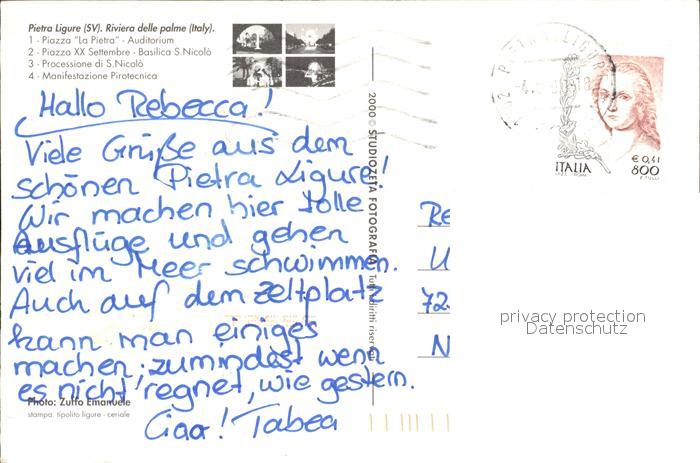 Pietra Ligure (SV). Riviera delle palme (Italy).
1 - Piazza "La Pietra" - Auditorium
2 - Piazza XX Settembre - Basilica S.Nicolò
3 - Processione di S.Nicolò
4 - Manifestazione Pirotecnica
Hallo Rebecca!
Viele Grüße aus dem
schönen Pietra Ligure!
Wir machen hier tolle
Ausflüge und gehen
viel im Meer schwimmen.
Auch auf dem Zeltplatz
kann man einiges
machen, zumindest wenn
es nicht regnet, wie gestern.
Ciao! Tabea
Photo: Zuffo Emanuele
stampa: tipolito ligure - ceriale
2000 © STUDIOZETA FOTOGRAFIA - Tutti i diritti riservati
PIETRA LIGURE
ITALIA
€ 0,41
800
Re
U
72
N
privacy protection
Datenschutz